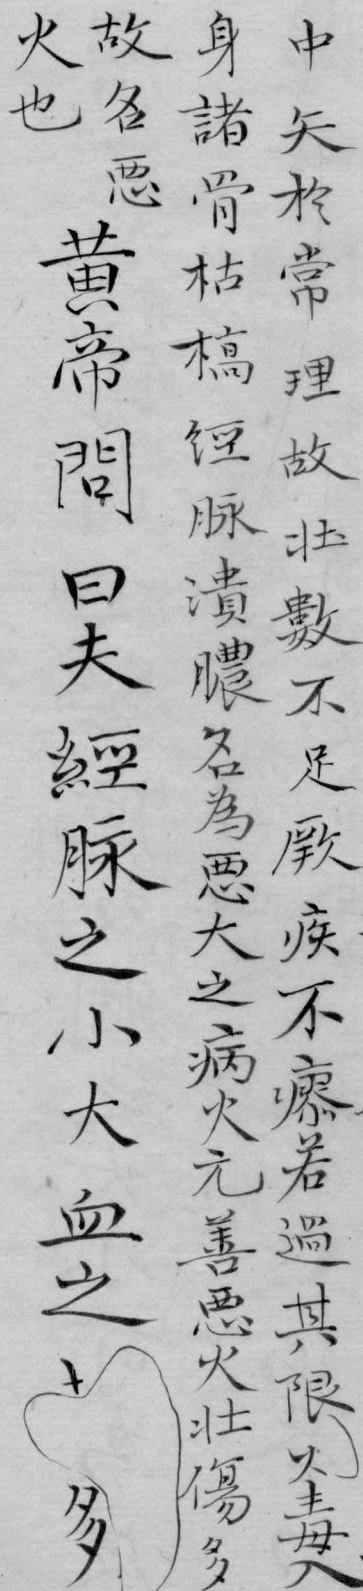 中矢於常理故壮數不足厥疾不瘳若過其限火毒入
身諸骨枯槁經脉潰膿名為惡大之病火元善惡火壮傷多
故名惡
火也
黄帝問曰夫經脉之小大血之多